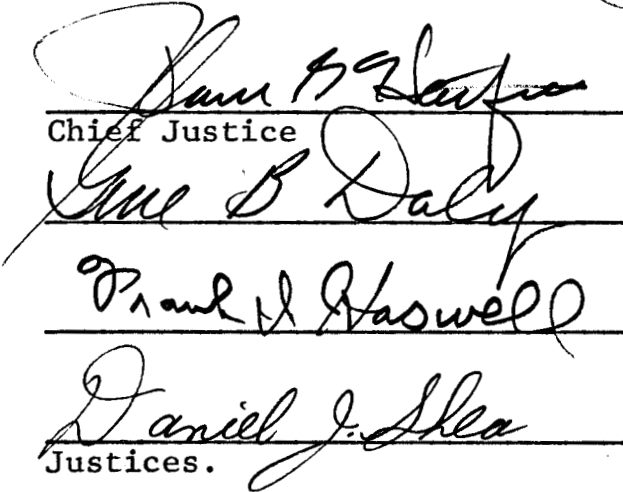 Paul G Hatfield
Chief Justice
Gene B Daly
Frank I Haswell
Daniel J. Shea
Justices.